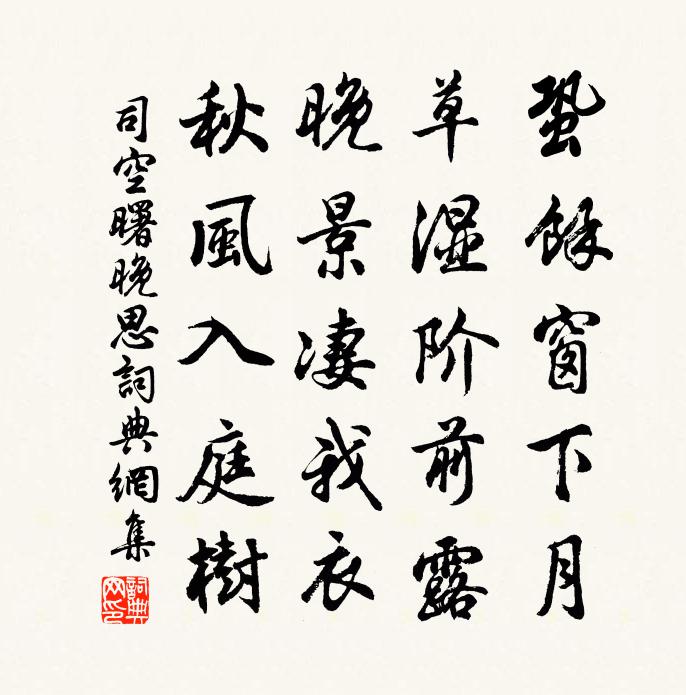 蛩餘窗下月
草湿阶前露
晚景凄我衣
秋風入庭樹
司空曙晚思詞典網集
詞典網印